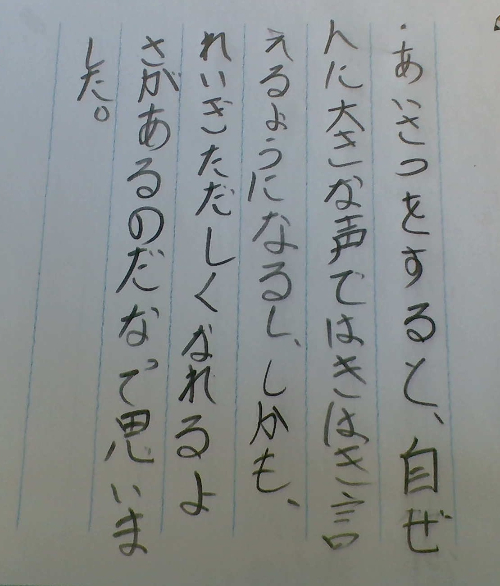 ・あいさつをすると、自ぜ
んに大きな声ではきはき言
えるようになるし、しかも、
れいぎただしくなれるよ
さがあるのだなって思いま
した。